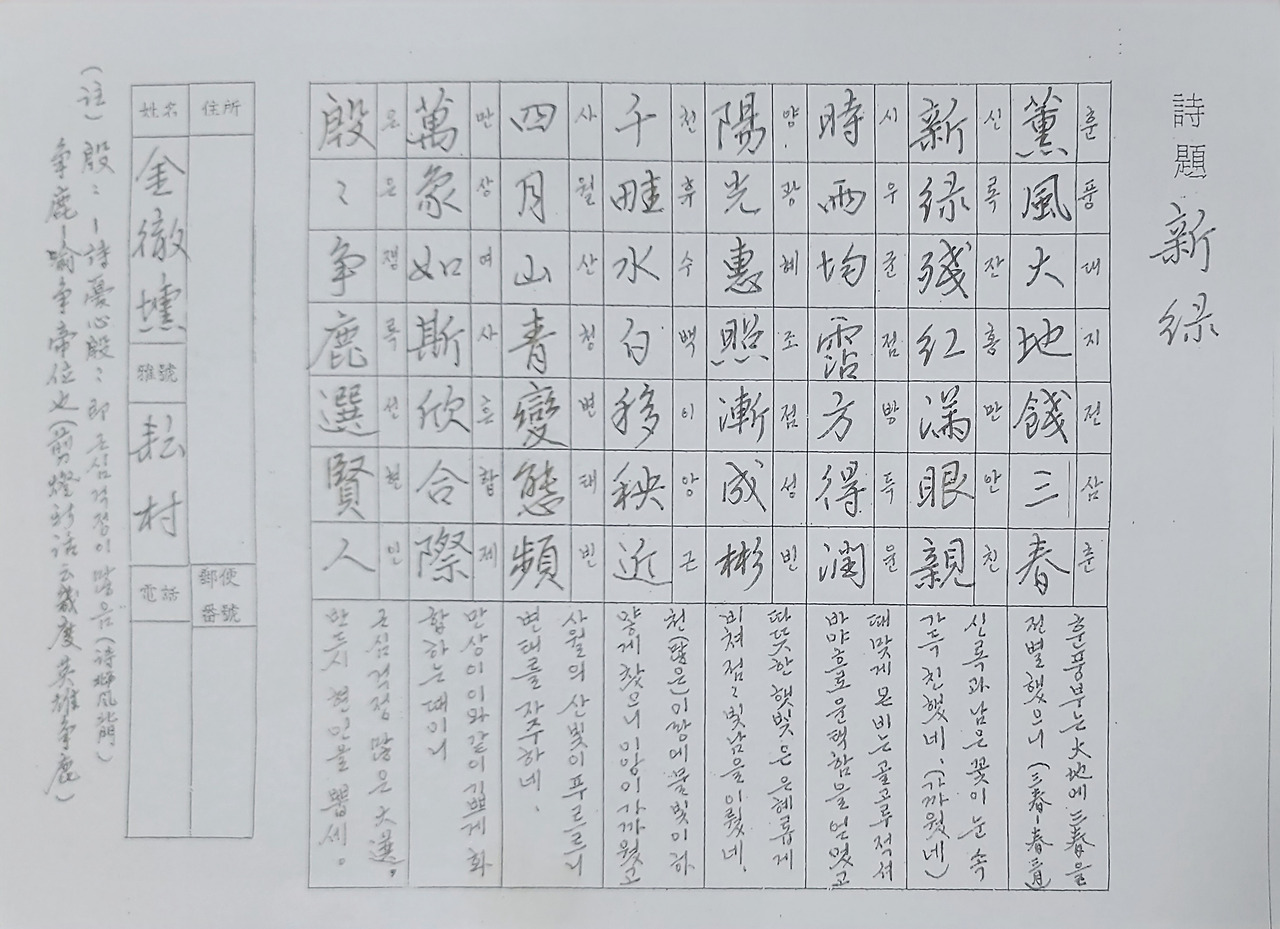 詩題 新綠
薰風大地餞三春
훈풍대지전삼춘
훈풍부는 大地에 三春을
전별했으니 (三春-春三月)
新綠殘紅滿眼親
신록잔홍만안친
신록과 남은 꽃이 눈 속
가득 친했네. (가까웠네)
時雨均霑方得潤
시우균점방득윤
때맞게 온 비는 골고루 적셔
바야흐로 윤택함을 얻었고
陽光惠照漸成彬
양광혜조점성빈
따뜻한 햇빛은 은혜롭게
비쳐 점점 빛남을 이뤘네.
千畦水白移秧近
천휴수백이앙근
천(많은)이랑에 물빛이 하
얗게 찼으니 이앙이 가까웠고
四月山青變態頻
사월산청변태빈
사월의 산빛이 푸르르니
변태를 자주하네.
萬象如斯欣合際
만상여사흔합제
만상이 이와 같이 기쁘게 화
합하는 때이니
殷〻爭鹿選賢人
은은쟁록선현인
근심 걱정 많은 大選,
반드시 현인을 뽑세.
住所
郵便番號
姓名 金徹壎
雅號 耘村
電話
(註) 殷〻-詩憂心殷〻 即 근심걱정이 많음 (詩 邶風北門)
爭鹿-喻爭帝位也 (剪燈新話云 幾度英雄爭鹿)